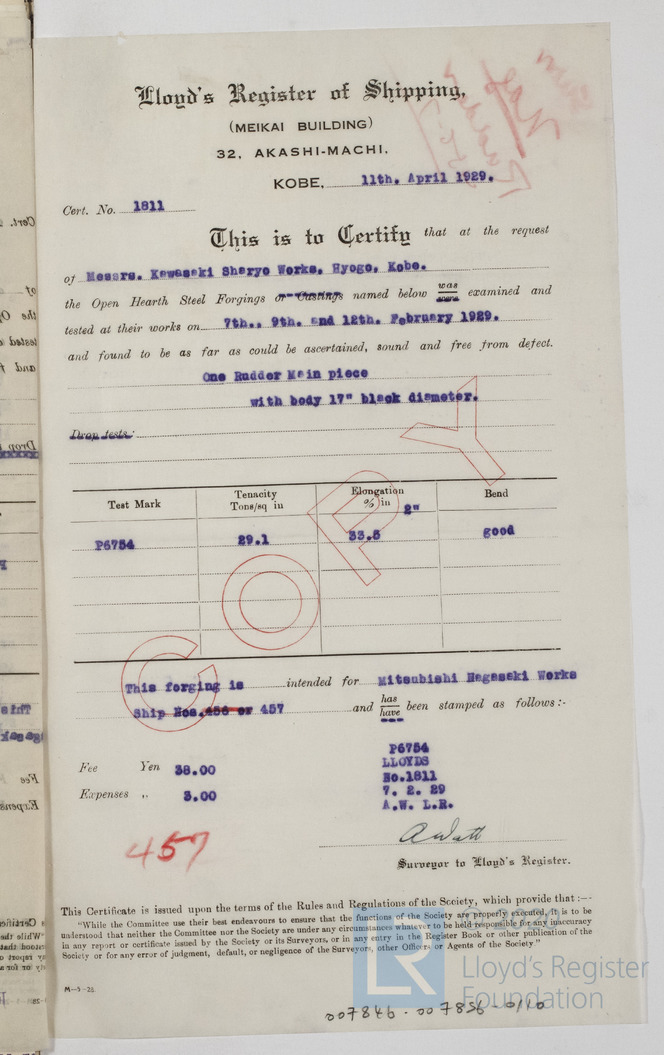 Lloyd's Register of Shipping,
(MEIKAI BUILDING)
32, AKASHI-MACHI.
KOBE, 11th. April 1929.
Cert. No. 1811
This is to Certify that at the request
of Messrs. Kawasaki Sharyo Works, Hyogo, Kobe.
the Open Hearth Steel Forgings or Castings named below was were examined and
tested at their works on 7th., 9th. and 12th. February 1929.
and found to be as far as could be ascertained, sound and free from defect.
One Rudder Main piece
with body 17" black diameter.
Drop tests:
Test Mark Tenacity Tons/sq in Elongation % in 2" Bend
P6754 29.1 33.5 good
COPY
This forging is intended for Mitsubishi Nagasaki Works
Ship Nos. 456 or 457 and has have been stamped as follows:-
P6754
LLOYDS
No.1811
7. 2. 29
A.W. L.R.
Fee Yen 38.00
Expenses „ 3.00
457
A Watt
Surveyor to Lloyd's Register.
This Certificate is issued upon the terms of the Rules and Regulations of the Society, which provide that :—
"While the Committee use their best endeavours to ensure that the functions of the Society are properly executed, it is to be
understood that neither the Committee nor the Society are under any circumstances whatever to be held responsible for any inaccuracy
in any report or certificate issued by the Society or its Surveyors, or in any entry in the Register Book or other publication of the
Society or for any error of judgment, default, or negligence of the Surveyors, other Officers or Agents of the Society"
LR
© 2020
Lloyd's Register
Foundation
007846-007856-0110